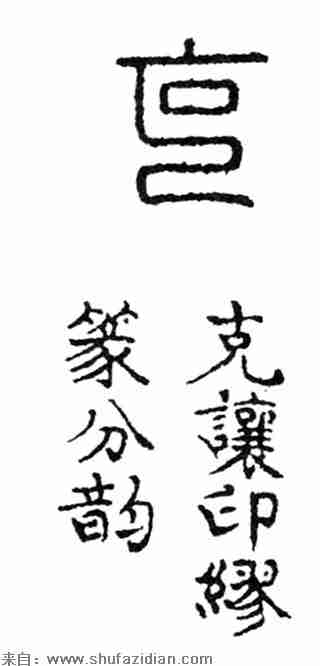 克
克讓印繆
篆分韵
来自：www.shufazidian.com